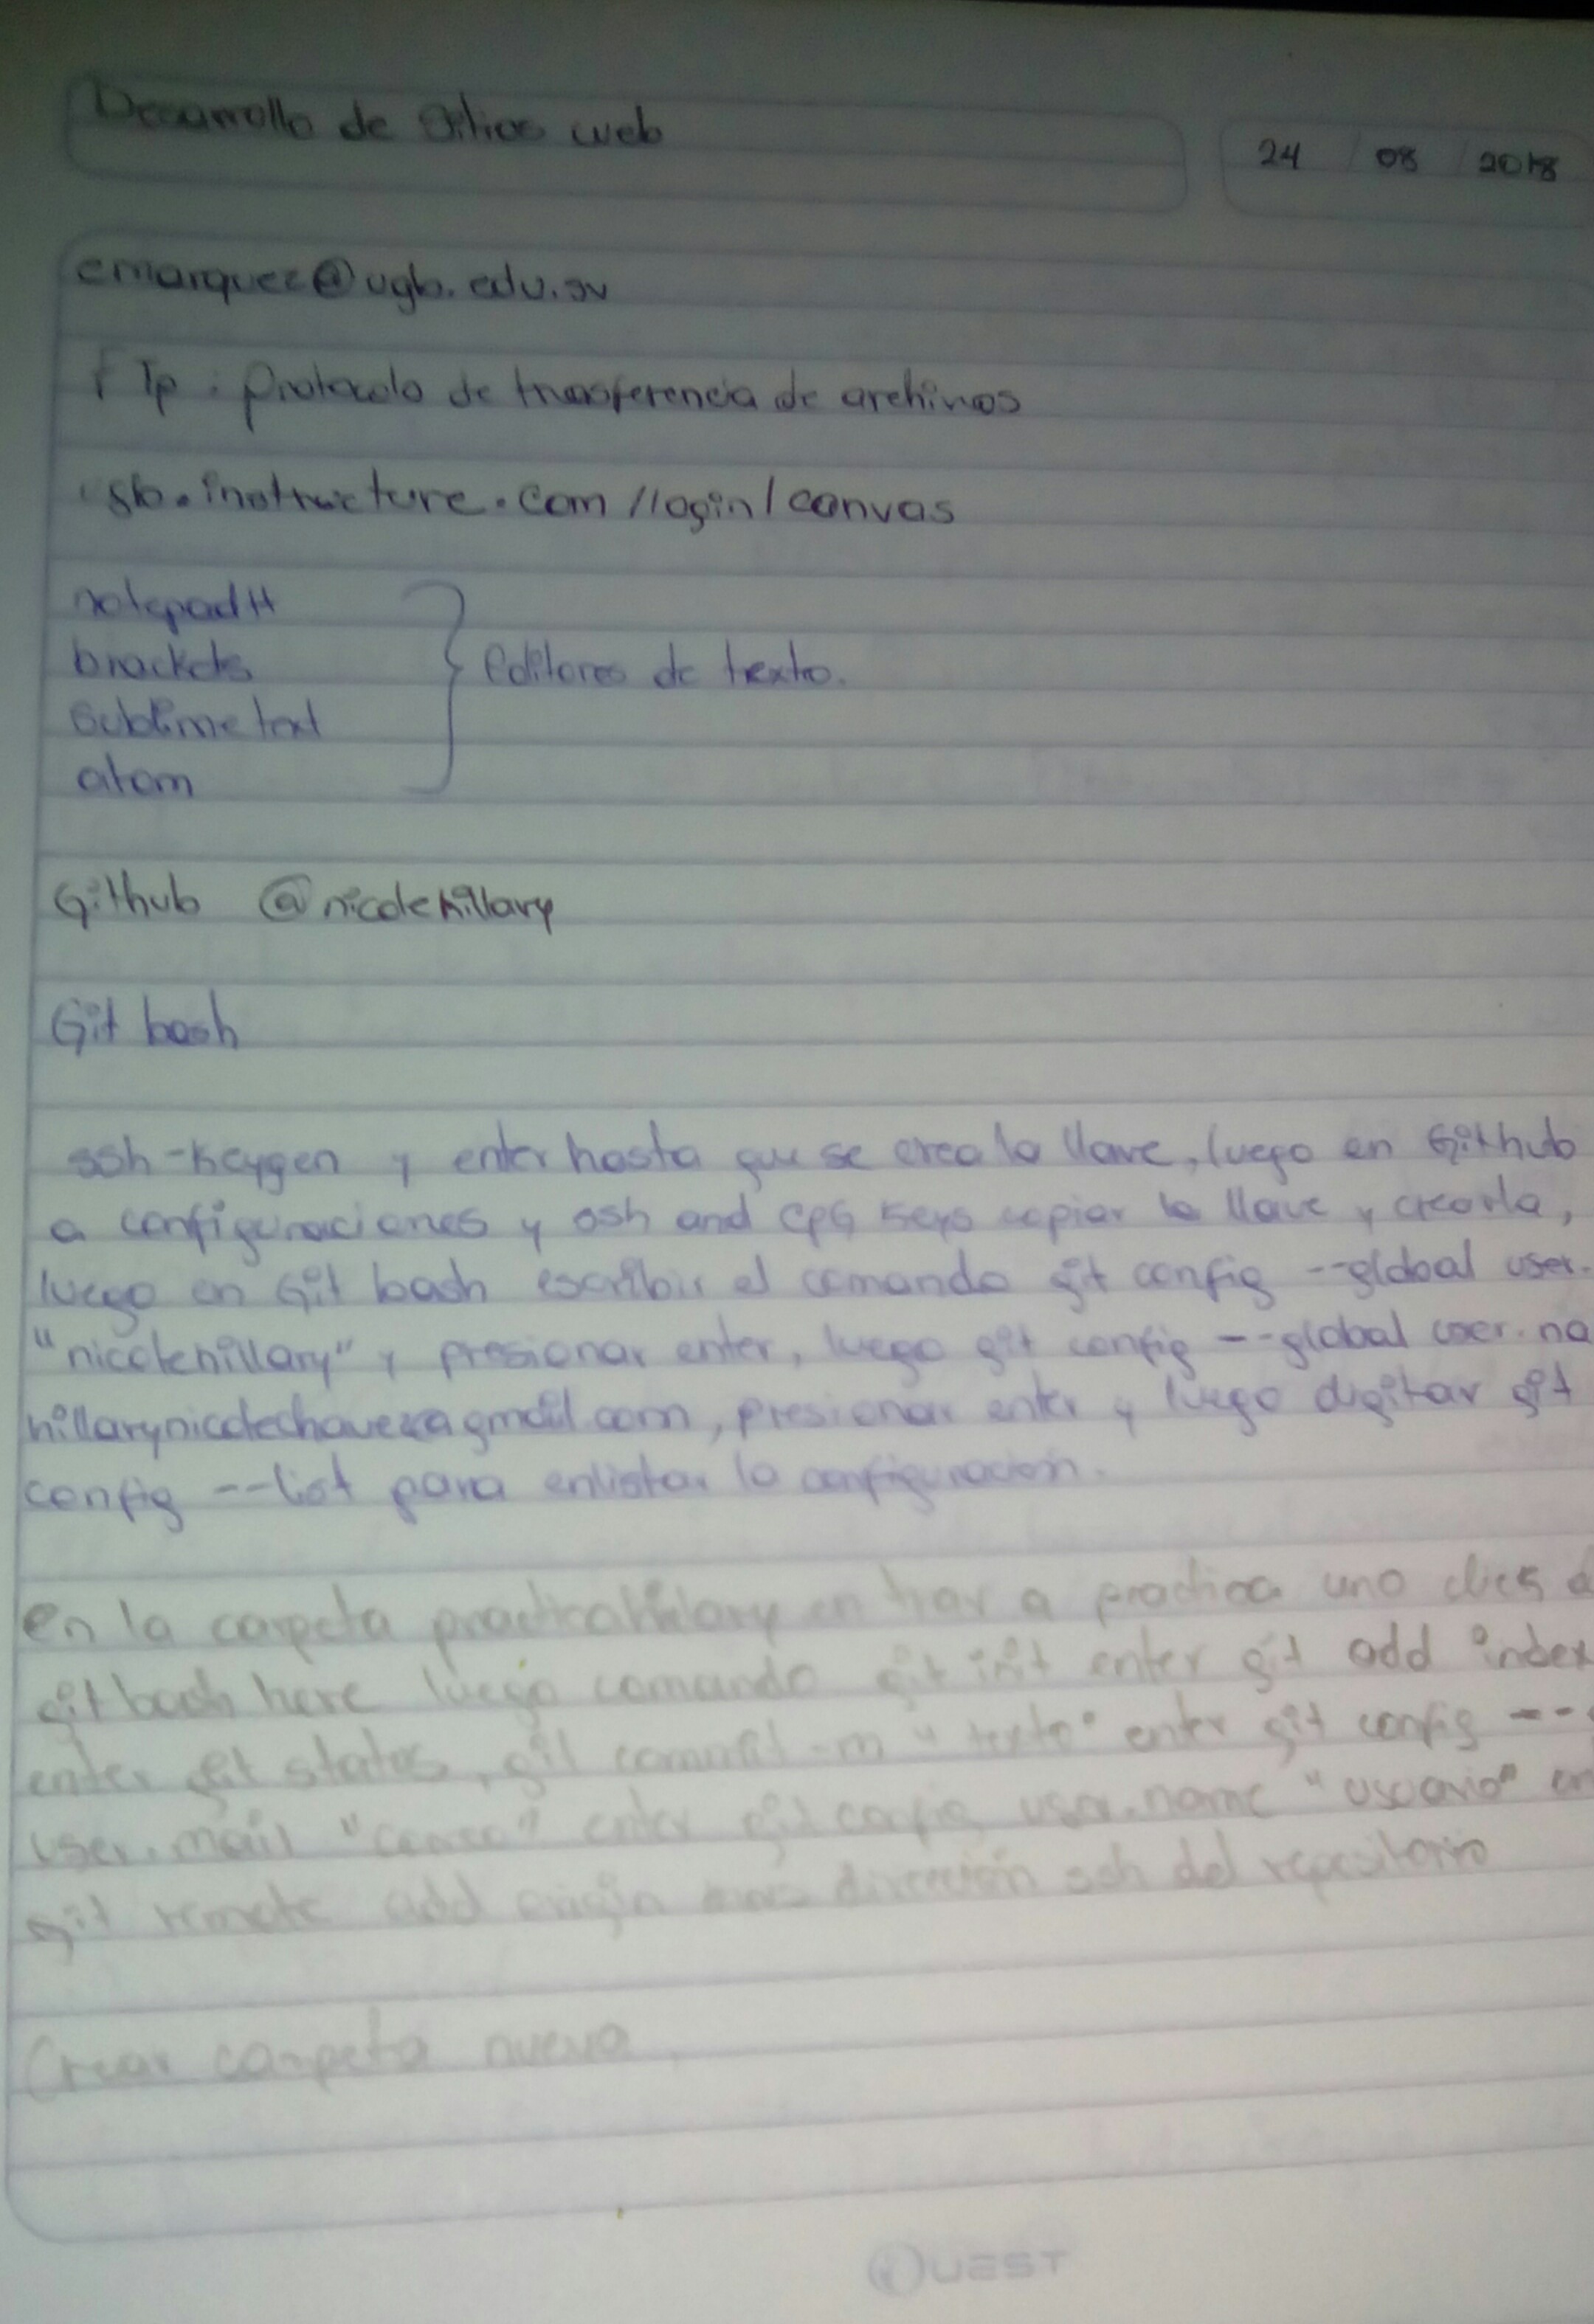 Desarrollo de sitios web
24 / 08 / 2018
emarquez@ugb.edu.sv
fTp : protocolo de transferencia de archivos
ugb.instructure.com/login/canvas
notepad++
brackets
sublime text
atom
Editores de texto.
Github @nicolehillary
Git bash
ssh-keygen y enter hasta que se crea la llave, luego en Github
a configuraciones y ssh and GPG keys copiar la llave y crearla,
luego en Git bash escribir el comando git config --global user.
"nicolehillary" y presionar enter, luego git config --global user.na
hillarynicolechavez@gmail.com, presionar enter y luego digitar git
config --list para enlistar la configuración.
en la carpeta practicaHillary entrar a practica uno click d
git bash here luego comando git init enter git add index
enter git status, git commit -m "texto" enter git config --
user.mail "correo" enter git config user.name "usuario" en
git remote add origin mas dirección ssh del repositorio
Crear carpeta nueva.
QUEST